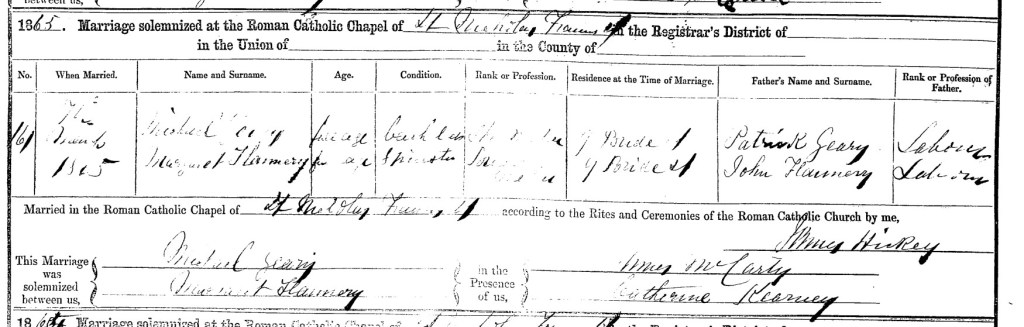 between us,
1865. Marriage solemnized at the Roman Catholic Chapel of St Nicholas Francis St in the Registrar's District of
in the Union of in the County of
No. When Married. Name and Surname. Age. Condition. Rank or Profession. Residence at the Time of Marriage. Father's Name and Surname. Rank or Profession of Father.
161 March 1865 Michael full age bachelor 9 Bride St Patrick Geary Labourer
Margaret Flannery full age Spinster 9 Bride St John Flannery Labourer
Married in the Roman Catholic Chapel of St Nicholas Francis St according to the Rites and Ceremonies of the Roman Catholic Church by me,
James Hickey
This Marriage was solemnized between us,
Michael Geary
Margaret Flannery
in the Presence of us,
James McCarty
Catherine Kearney
Marriage solemnized at the Roman Catholic Chapel of